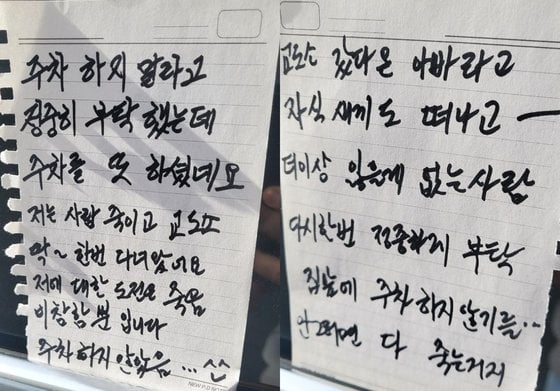 주차 하지 말라고
정중히 부탁 했는데
주차를 또 하셨네요
저는 사람 죽이고 교도소
딱~ 한번 다녀왔어요
저에 대한 도전요 죽음
비참함 뿐 입니다
주차 하지 안았음...
교도소 갔다온 아빠라고
자식 새끼도 떠나고
더이상 잃을게 없는 사람
다시한번 정중하게 부탁
집앞에 주차 하지 않기를..
안그러면 다 죽는거지